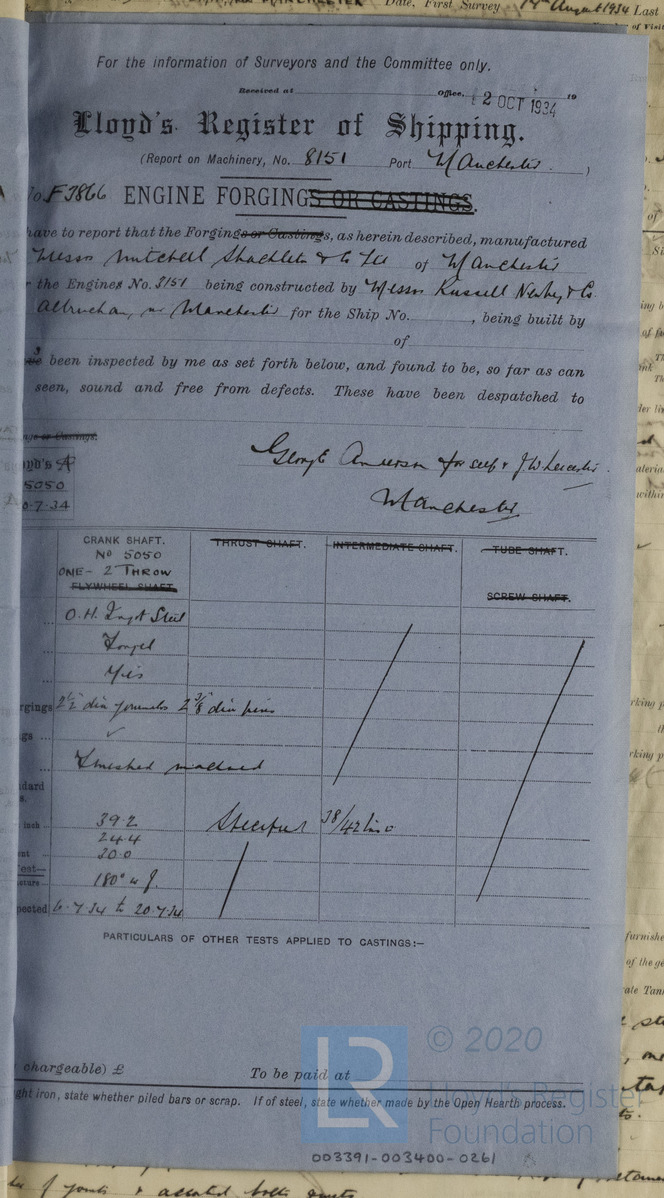 MANCHESTER Date, First Survey 14th August 1934 Last
For the information of Surveyors and the Committee only.
Received at Office, 2 OCT 1934 19
Lloyd's Register of Shipping.
(Report on Machinery, No. 8151 Port Manchester.)
No F3866 ENGINE FORGINGS OR CASTINGS.
have to report that the Forgings or Castings, as herein described, manufactured
Messrs Mitchell Shackleton & Co Ltd of Manchester
the Engines No. 8151 being constructed by Messrs Russell Newbery & Co
Altrincham, nr Manchester for the Ship No. , being built by
of
been inspected by me as set forth below, and found to be, so far as can
seen, sound and free from defects. These have been despatched to
or Castings.
George Anderson for self & J.W. Leicester
Manchester
oyd's
5050
0.7.34
CRANK SHAFT. THRUST SHAFT. INTERMEDIATE SHAFT. TUBE SHAFT.
No 5050
ONE - 2 THROW
FLYWHEEL SHAFT. SCREW SHAFT.
O.H. Ingot Steel
Forged
Yes
rgings 2½ dia journals 2⅜ dia pins
gs
Finished machined
dard
s.
inch 39.2 Specified 38/42 tns
24.4
ent 30.0
ont—
cture 180°
pected 6.7.34 to 20.7.34
PARTICULARS OF OTHER TESTS APPLIED TO CASTINGS:—
© 2020
chargeable) £ To be paid at
ght iron, state whether piled bars or scrap. If of steel, state whether made by the Open Hearth process.
LR Lloyd's Register
Foundation
003391-003400-0261